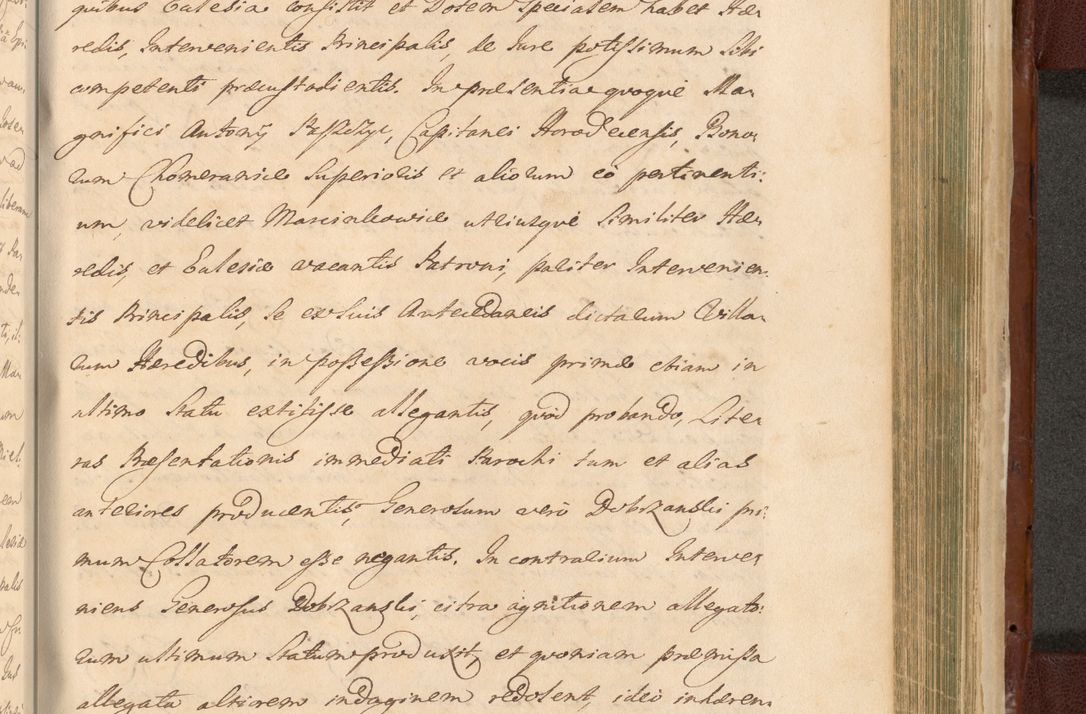 quibus Ecclesia consistit et Dotem specialem habet Hæ-
redis, Intervenientis Principalis, de Jure potissimum Sibi
competenti præcustodientis. In præsentia quoque Ma-
gnifici Antonij Paszczyc, Capitanei Horodecensis, Bono-
rum Chomeranice Superioris et aliorum eo pertinenti-
um, videlicet Marcinkowice utriusque similiter Hæ-
redis, et Ecclesiæ vacantis Patroni, pariter Intervenien-
tis Principalis, Se ex Suis Antecedaneis dictarum Villa-
rum Hæredibus, in possessione vocis primæ etiam in
ultimo Statu extitisse allegantis, quod probando, Lite-
ras Præsentationis immediati Parochi tum et alias
anteriores producentis, Generosum vero Dobrzanski pri-
mum Collatorem esse negantis. In contrarium Interve-
niens Generosus Dobrzanski, citra agnitionem allegato-
rum ultimum Statum produxit, et quoniam præmissa
allegata altiorem indaginem redolent, ideo inhæren-